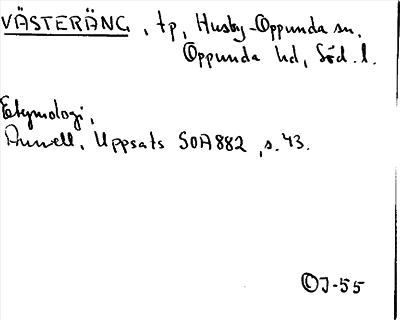 VÄSTERÄNG, tp, Husby-Oppunda sn,
Oppunda hd, Söd. l.
Etymologi,
Uppsats SOA 882, s. 43.
OJ-55